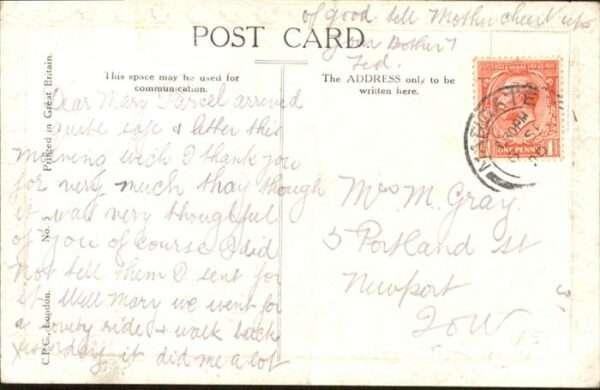 of good tell Mother cheer up
your Brother
Ted.
POST CARD.
This space may be used for
communication.
The ADDRESS only to be
written here.
Printed in Great Britain.
No. 5
C.P.C., London.
MARGATE
ONE PENNY
Dear Mary Parcel arrived
quite safe & letter this
morning wich I thank you
for very much thay though
it was very thoughtful
of you of course I did
Not tell them I sent for
it Well Mary we went for
a lovely ride & walk back
yesterday it did me a lot
Mrs M. Gray
5 Portland St
Newport
I o W